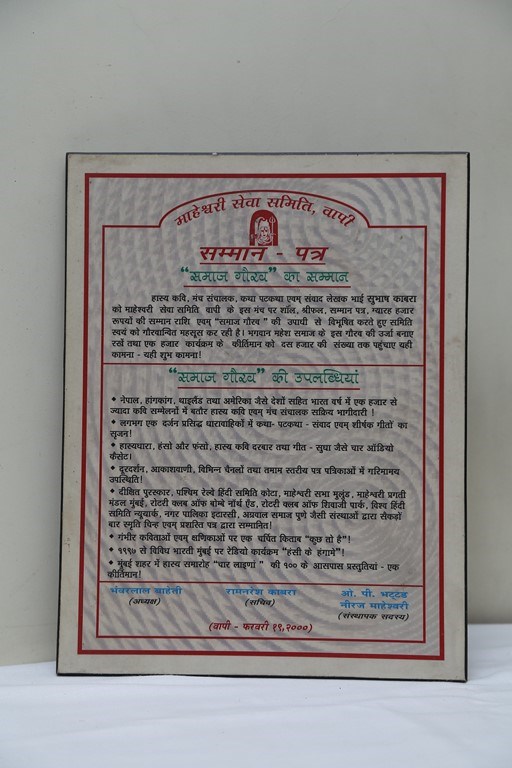 माहेश्वरी सेवा समिति, वापी
सम्मान - पत्र
"समाज गौरव" का सम्मान
हास्य कवि, मंच संचालक, कथा पटकथा एवम् संवाद लेखक भाई सुभाष काबरा
को माहेश्वरी सेवा समिति वापी के इस मंच पर शॉल, श्रीफल, सम्मान पत्र, ग्यारह हजार
रूपयों की सम्मान राशि एवम् "समाज गौरव" की उपाधी से विभूषित करते हुए समिति
स्वयं को गौरवान्वित महसूस कर रही है! भगवान महेश समाज के इस गौरव की उर्जा बनाए
रखें तथा एक हजार कार्यक्रम के कीर्तिमान को दस हजार की संख्या तक पहुंचाए यही
कामना - यही शुभ कामना!
"समाज गौरव" की उपलब्धियां
◆ नेपाल, हांगकांग, थाईलैंड तथा अमेरिका जैसे देशों सहित भारत वर्ष में एक हजार से
ज्यादा कवि सम्मेलनों में बतौर हास्य कवि एवम् मंच संचालक सक्रिय भागीदारी !
◆ लगभग एक दर्जन प्रसिद्ध धारावाहिकों में कथा- पटकथा - संवाद एवम् शीर्षक गीतों का
सृजन!
◆ हास्यधारा, हंसो और फंसो, हास्य कवि दरबार तथा गीत - सुधा जैसे चार ऑडियो
कैसेट।
◆ दूरदर्शन, आकाशवाणी, विभिन्न चैनलों तथा तमाम स्तरीय पत्र पत्रिकाओं में गरिमामय
उपस्थिति!
◆ दीक्षित पुरस्कार, पश्चिम रेल्वे हिंदी समिति कोटा, माहेश्वरी सभा मुलुंड, माहेश्वरी प्रगती
मंडल मुंबई, रोटरी क्लब ऑफ बोम्बे नॉर्थ ऐंड, रोटरी क्लब ऑफ शिवाजी पार्क, विश्व हिंदी
समिति न्यूयार्क, नगर पालिका इटारसी, अग्रवाल समाज पुणे जैसी संस्थाओं द्वारा सैकडों
बार स्मृति चिन्ह एवम् प्रशस्ति पत्र द्वारा सम्मानित!
◆ गंभीर कविताओं एवम् क्षणिकाओं पर एक चर्चित किताब "कुछ तो है"!
◆ १९९५ से विविध भारती मुंबई पर रेडियो कार्यक्रम "हंसी के हंगामे"!
◆ मुंबई शहर में हास्य समारोह "चार लाइणां" की १०० के आसपास प्रस्तुतियां - एक
कीर्तिमान!
भंवरलाल बाहेती
रामनरेश काबरा
ओ. पी. भट्टड
(अध्यक्ष)
(सचिव)
नीरज माहेश्वरी
(संस्थापक सदस्य)
(वापी - फरवरी १९,२०००)